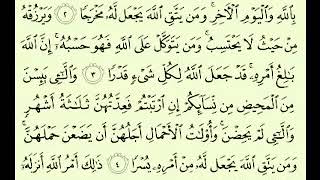 بِٱللَّهِ وَٱلْيَوْمِ ٱلْءَاخِرِ ۚ وَمَن يَتَّقِ ٱللَّهَ يَجْعَل لَّهُۥ مَخْرَجًا ٢ وَيَرْزُقْهُ
مِنْ حَيْثُ لَا يَحْتَسِبُ ۚ وَمَن يَتَوَكَّلْ عَلَى ٱللَّهِ فَهُوَ حَسْبُهُۥٓ ۚ إِنَّ ٱللَّهَ
بَـٰلِغُ أَمْرِهِۦ ۚ قَدْ جَعَلَ ٱللَّهُ لِكُلِّ شَىْءٍ قَدْرًا ٣ وَٱلَّـٰٓـِٔى يَئِسْنَ
مِنَ ٱلْمَحِيضِ مِن نِّسَآئِكُمْ إِنِ ٱرْتَبْتُمْ فَعِدَّتُهُنَّ ثَلَـٰثَةُ أَشْهُرٍ
وَٱلَّـٰٓـِٔى لَمْ يَحِضْنَ ۚ وَأُو۟لَـٰتُ ٱلْأَحْمَالِ أَجَلُهُنَّ أَن يَضَعْنَ حَمْلَهُنَّ ۚ
وَمَن يَتَّقِ ٱللَّهَ يَجْعَل لَّهُۥ مِنْ أَمْرِهِۦ يُسْرًا ٤ ذَٰلِكَ أَمْرُ ٱللَّهِ أَنزَلَهُۥٓ